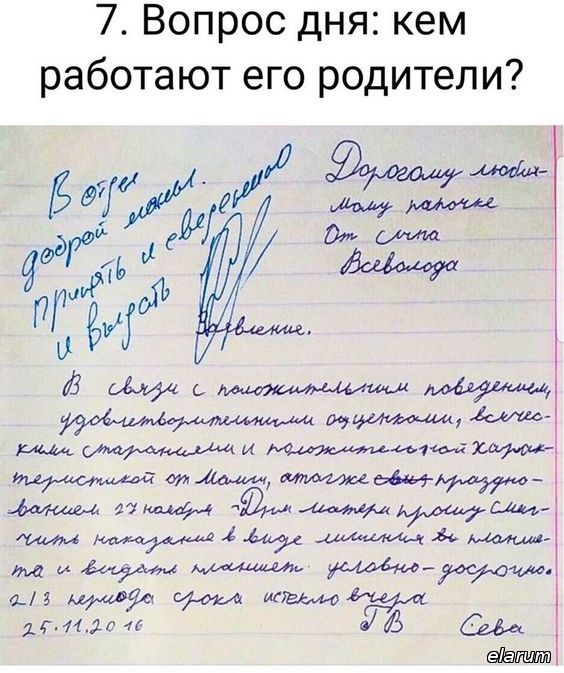 7. Вопрос дня: кем
работают его родители?
В отдел
доброй мамы.
Принять к сведению
и выдать
Дорогому люби-
мому папочке
От сына
Всеволода
Заявление.
В связи с положительным поведением,
удовлетворительными оценками, всячес-
кими стараниями и положительной харак-
теристикой от Мамы, атакже праздно-
ванием 27 ноября "Дня матери прошу смяг-
чить наказание в виде лишения планше-
та и выдать планшет условно-досрочно.
2/3 периода срока истекло вчера
25.11.2016 ГВ Сева
elarum